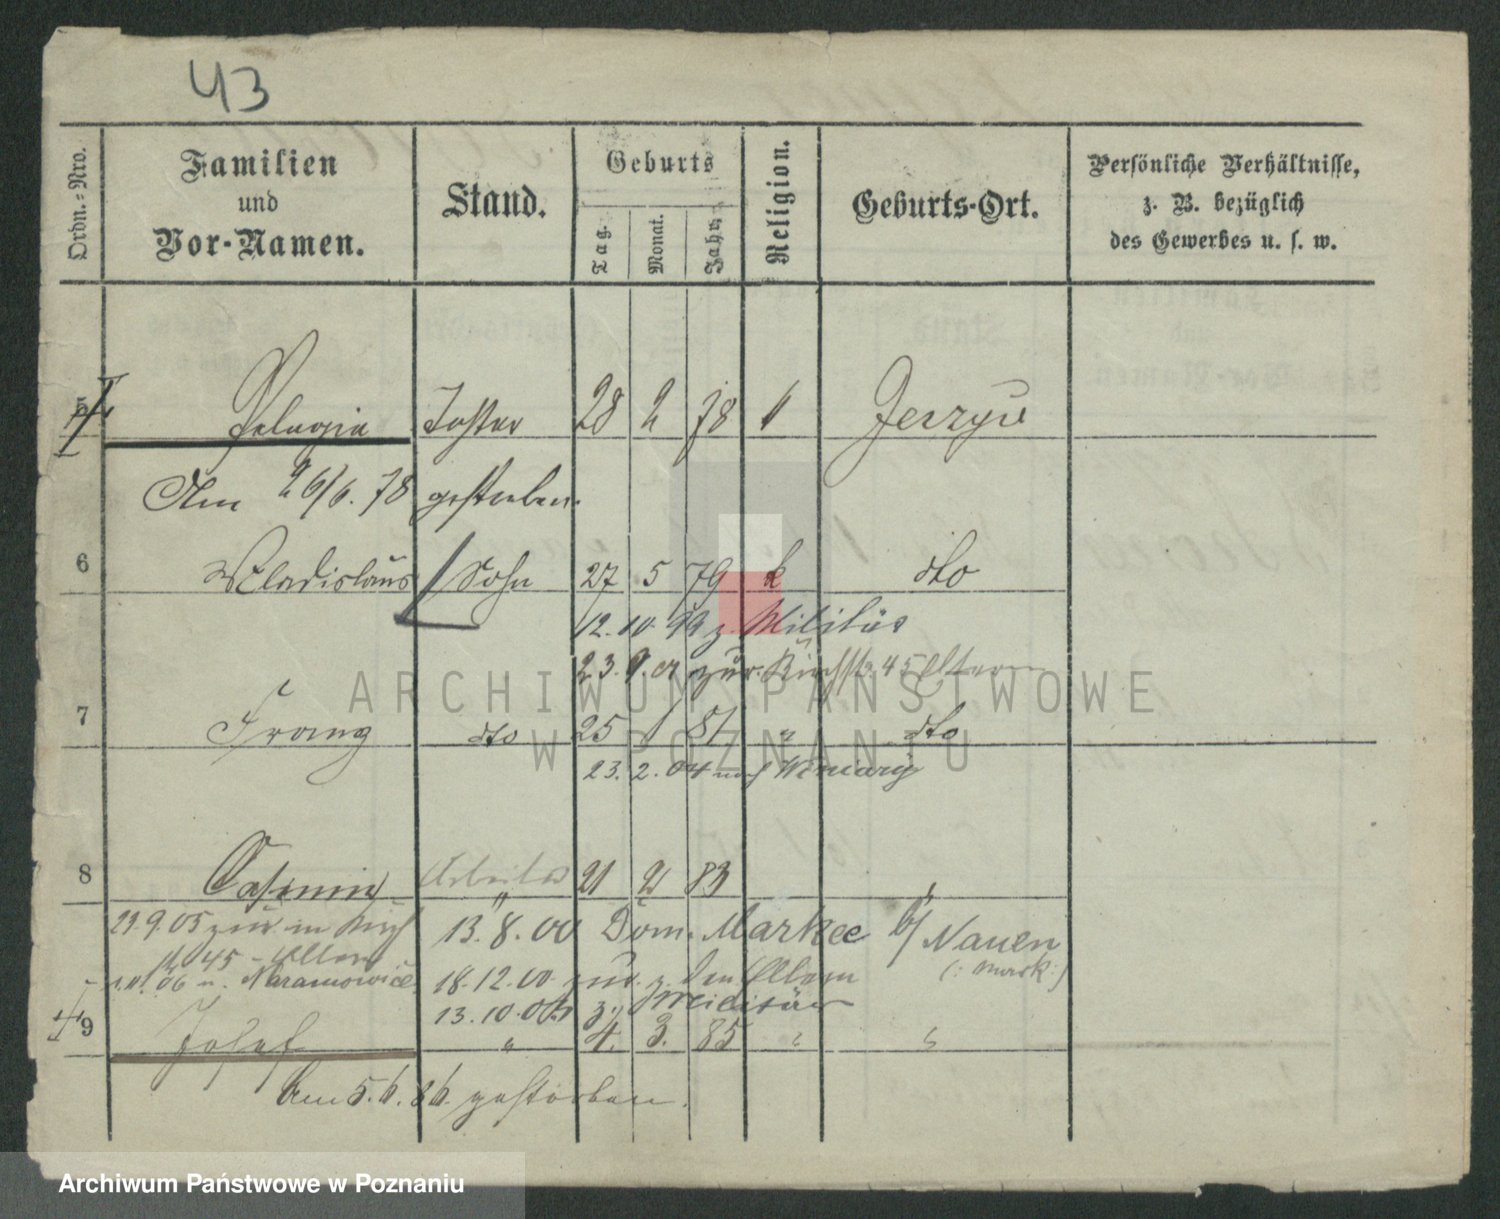 43
Ordn.-Nro.
Familien
und
Vor-Namen.
Stand.
Geburts
Tag.
Monat.
Jahr.
Religion.
Geburts-Ort.
Persönliche Verhältnisse,
z. B. bezüglich
des Gewerbes u. s. w.
5 Pelagia Tochter 28 2 78 " Jerzyce
Am 26/6. 78 gestorben.
6 Wladislaus Sohn 27 5 79 k dto
12. 10. 99 z. Militär
23. 9. 01 zur. Kirchstr. 45 Eltern
7 Franz dto 25 1 81 " dto
23. 2. 04 nach Winiary
8 Casimir Arbeiter 21 2 83 "
29. 9. 05 zur. in Kirch
str 45 - Eltern
06 n. Naramowice
13. 8. 00 Dom. Markee b/ Nauen
(: Mark :)
18. 12. 00 zur. z. den Eltern
13. 10. 03 z. Militär
9 Josef " 4. 3. 85 " "
Am 5. 6. 86. gestorben.
ARCHIWUM PAŃSTWOWE
W POZNANIU
Archiwum Państwowe w Poznaniu